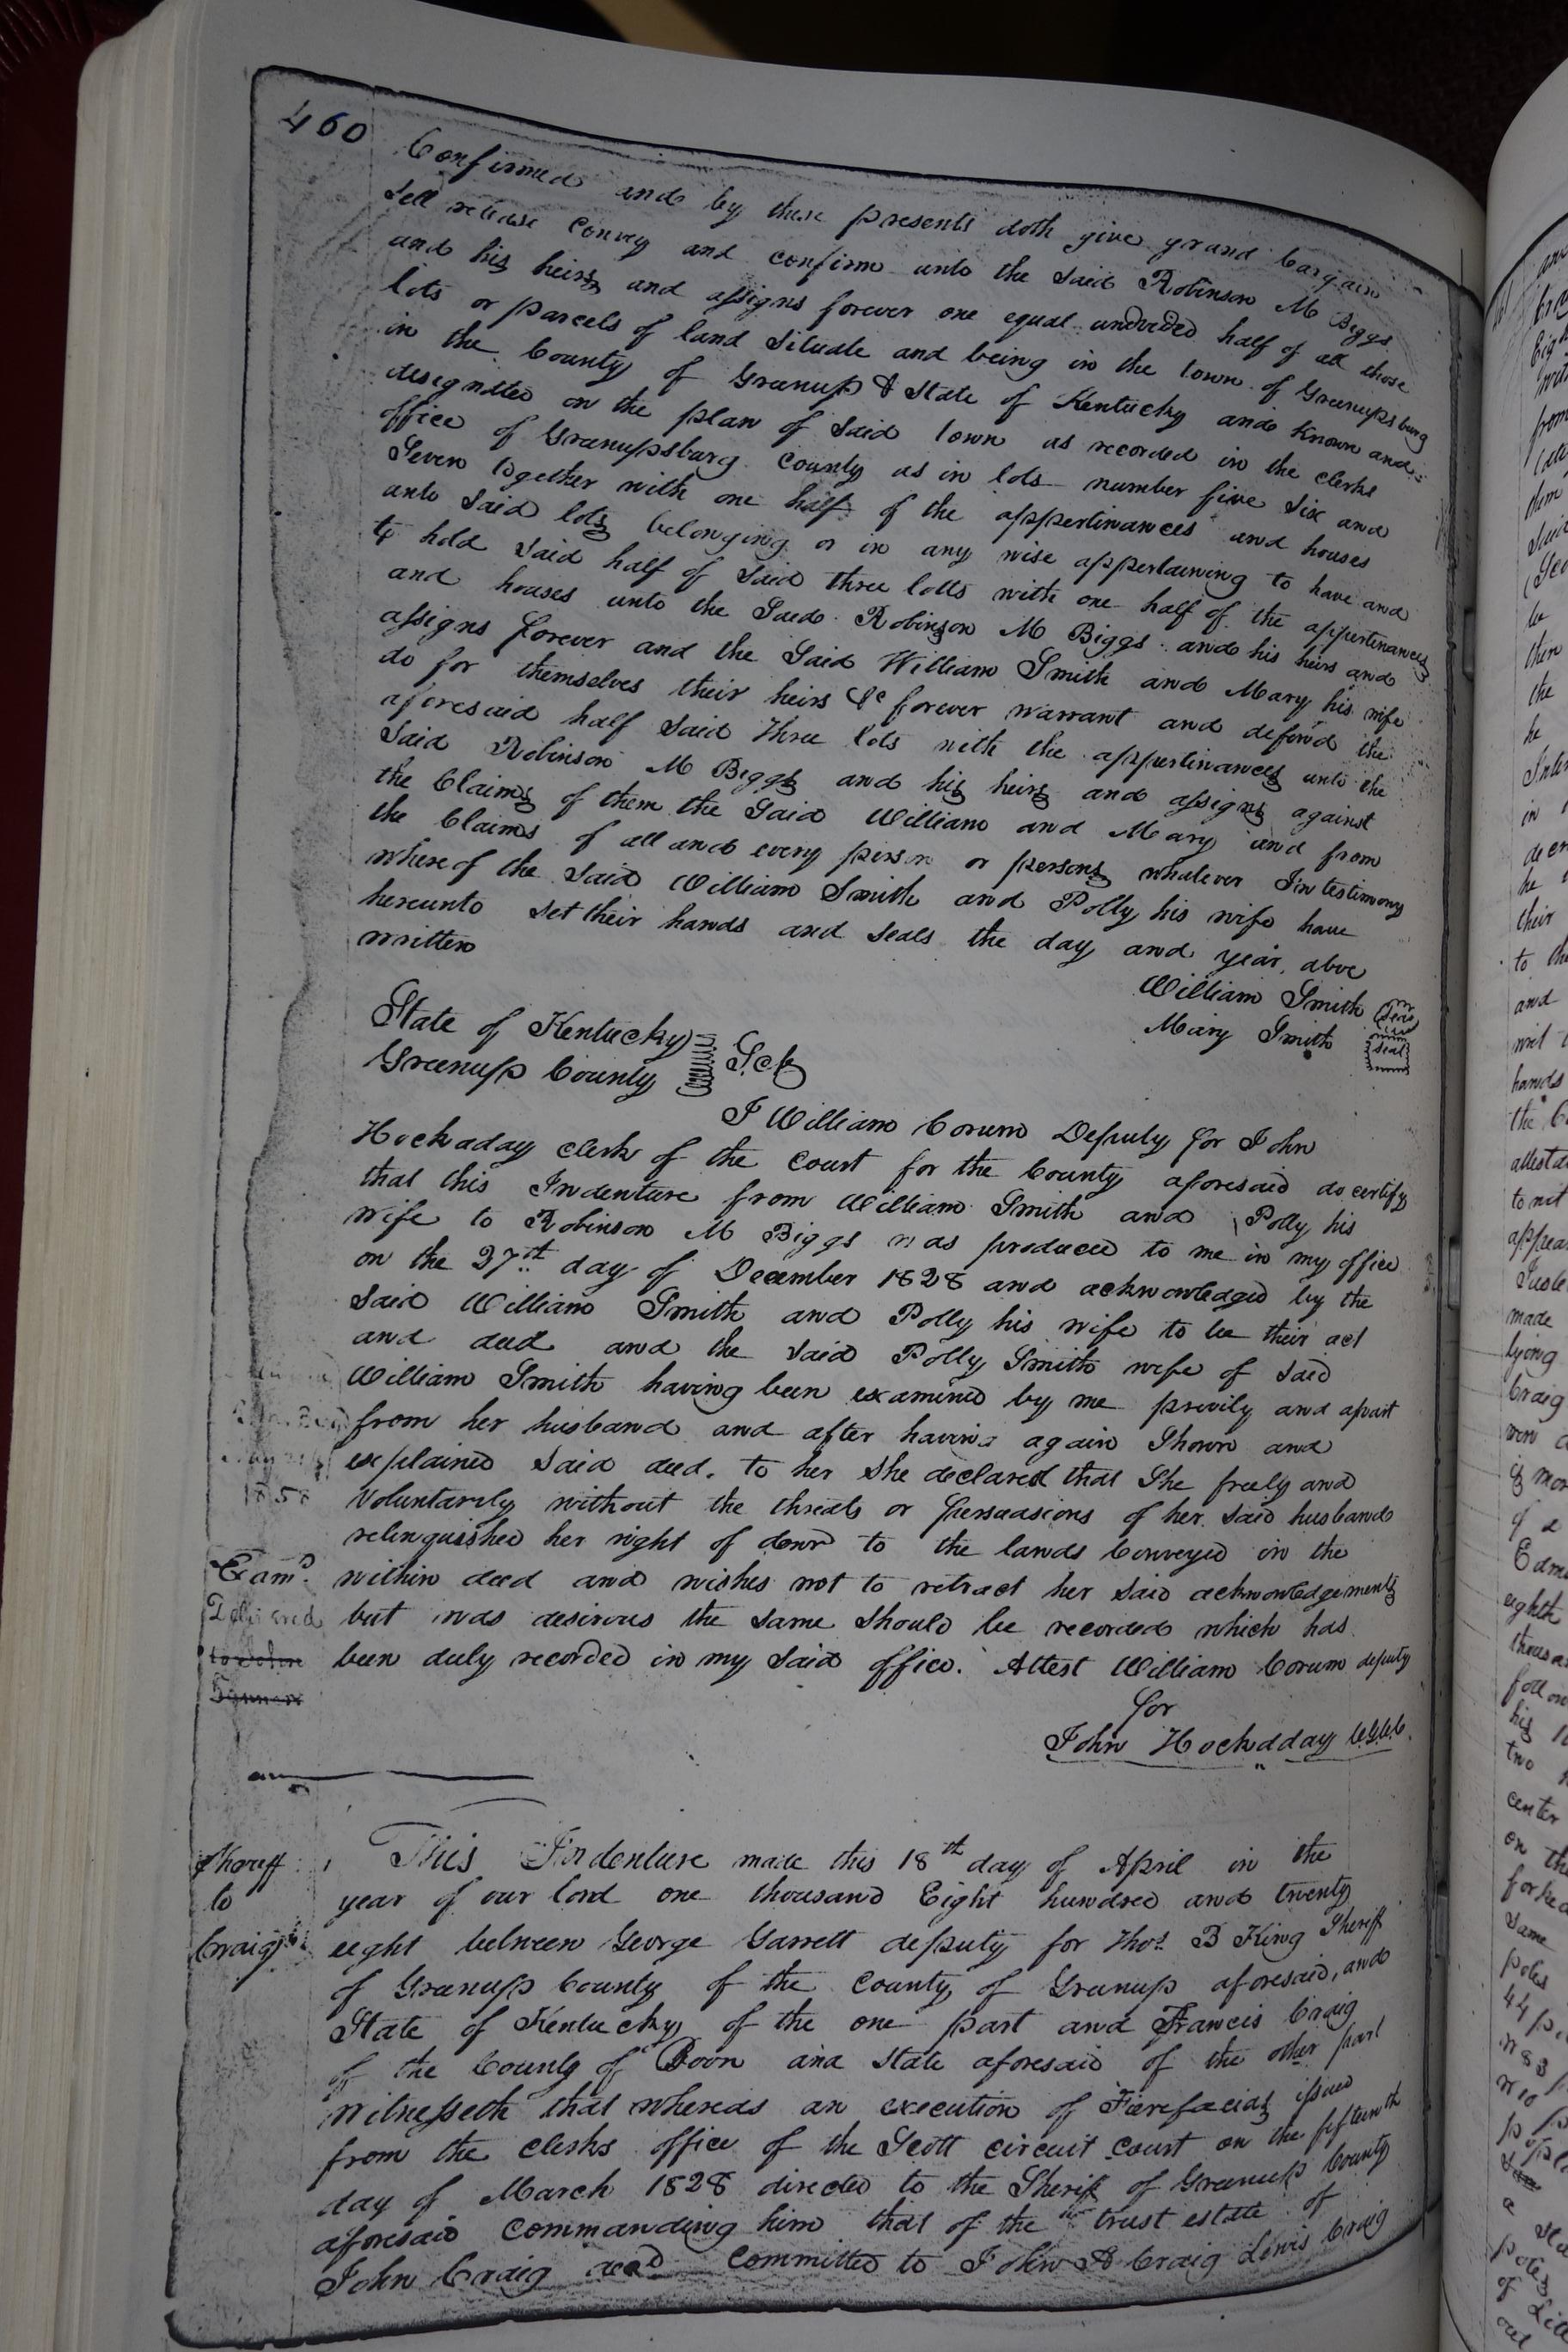 460
Confirmed and by these presents doth give grand bargain
Sell release convey and confirm unto the said Robinson M Biggs
and his heirs and assigns forever one equal undivided half of all those
lots or parcels of land situate and being in the town of Greenupsburg
in the County of Greenup & State of Kentucky and known and
designated on the plan of said town as recorded in the clerks
office of Greenupsburg County as in lots number five six and
Seven together with one half of the appertinances and houses
unto said lots belonging or in any wise appertaining to have and
to hold said half of said three lotts with one half of the appertinances
and houses unto the Said Robinson M Biggs and his heirs and
assigns forever and the Said William Smith and Mary his wife
do for themselves their heirs &c forever warrant and defend the
aforesaid half said three lots with the appertinances unto the
said Robinson M Biggs and his heirs and assigns against
the Claims of them the Said William and Mary and from
the Claims of all and every person or persons whatever In testimony
whereof the said William Smith and Polly his wife have
hereunto set their hands and seals the day and year above
written
William Smith Seal
Mary Smith Seal
State of Kentucky
Greenup County Sct
I William Corum Deputy for John
Hockaday clerk of the court for the County aforesaid do certify
that this Indenture from William Smith and Polly his
wife to Robinson M Biggs was produced to me in my office
on the 27th day of December 1828 and acknowledged by the
said William Smith and Polly his wife to be their act
and deed and the said Polly Smith wife of said
William Smith having been examined by me privily and apart
from her husband and after having again Shown and
explained said deed to her she declared that She freely and
voluntarily without the threats or persuasions of her said husband
relinquished her right of dowr to the lands Conveyed in the
within deed and wishes not to retract her said acknowledgements
but was desirous the same should be recorded which has
been duly recorded in my said office. Attest William Corum deputy
for
John Hockadday C.G.C.C.
1858
Examd
Delivered
Sheriff
to
Craig
This Indenture made this 18th day of April in the
year of our lord one thousand Eight hundred and twenty
eight between George Garrett deputy for Thos B King Sheriff
of Greenup County of the County of Greenup aforesaid, and
State of Kentucky of the one part and Francis Craig
of the County of Boon and State aforesaid of the other part
Witnesseth that whereas an execution of Fierefacias issued
from the clerks office of the Scott circuit court on the fifteenth
day of March 1828 directed to the Sheriff of Greenup County
aforesaid commanding him that of the trust estate of
John Craig decd committed to John A Craig Lewis Craig